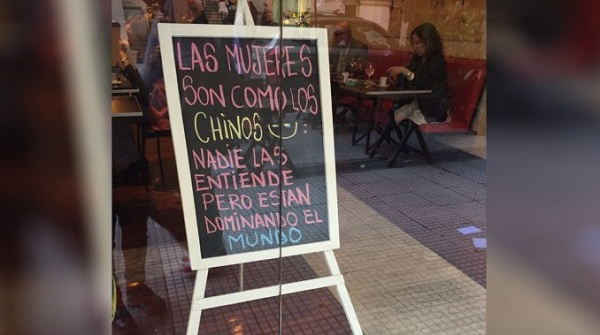 LAS MUJERES
SON COMO LOS
CHINOS :
NADIE LAS
ENTIENDE
PERO ESTAN
DOMINANDO EL
MUNDO